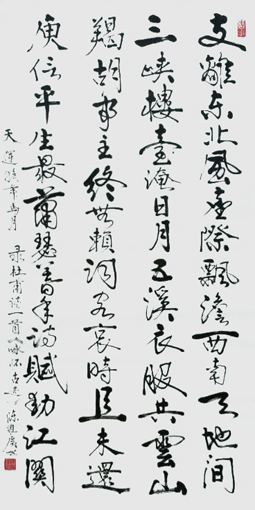 支離东北風塵際飄西南天地間
三峡樓臺淹日月五溪衣服共雲山
羯胡事主終無賴詞客哀時且未還
庾信平生最蕭瑟暮年詩賦動江關
天運年月 录杜甫詩一首咏怀古